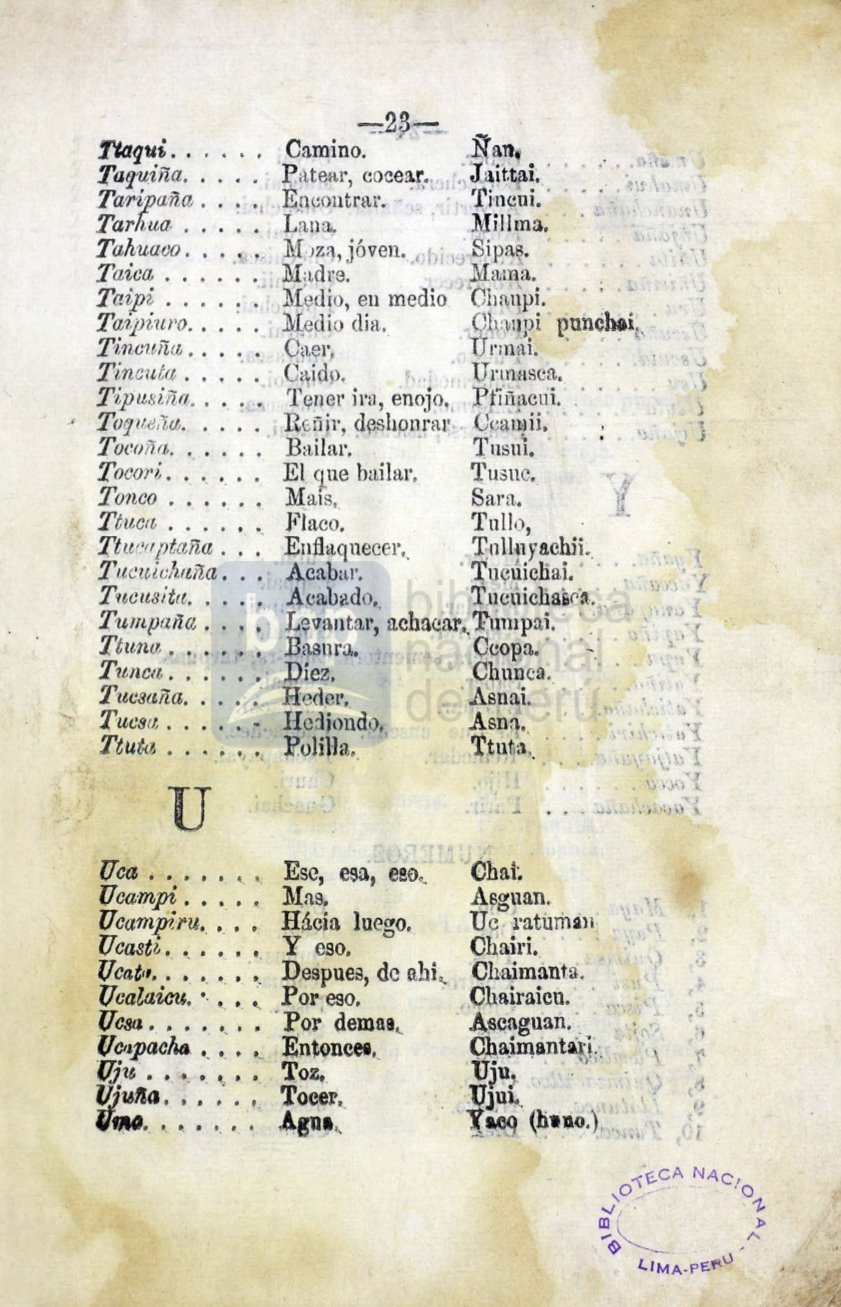 —23—
Ttaqui...... Camino. Ñan.
Taquiña..... Patear, cocear. Jaittai.
Taripaña.... Encontrar. Tincui.
Tarhua ..... Lana. Millma.
Tahuaco..... Moza, jóven. Sipas.
Taica ...... Madre. Mama.
Taipi ...... Medio, en medio Chaupi.
Taipiuro.... Medio dia. Chaupi punchai.
Tincuña..... Caer. Urmai.
Tincuta ..... Caido. Urmasca.
Tipusiña.... Tener ira, enojo. Ptiñacui.
Toqueña..... Reñir, deshonrar Ccamii.
Tocoña...... Bailar. Tusui.
Tocori...... El que bailar. Tusuc.
Tonco ...... Mais. Sara.
Ttuca ...... Flaco. Tullo,
Ttucaptaña ... Enflaquecer. Tulluyachii.
Tucuichaña... Acabar. Tucuichai.
Tucusita.... Acabado. Tucuichasca.
Tumpaña .... Levantar, achacar. Tumpai.
Ttuna ...... Basura. Ccopa.
Tunca...... Diez. Chunca.
Tucsaña.... Heder. Asnai.
Tucsa ...... Hediondo. Asna.
Ttuta ...... Polilla. Ttuta.
U
Uca ....... Ese, esa, eso. Chai.
Ucampi ..... Mas. Asguan.
Ucampiru.... Hácia luego. Uc ratuman
Ucasti...... Y eso. Chairi.
Ucat....... Despues, de ahi. Chaimanta.
Ucalaicu.... Por eso. Chairaicu.
Ucsa....... Por demas. Ascaguan.
Ucapacha .... Entonces. Chaimantari.
Uju ....... Toz. Uju.
Ujuña...... Tocer. Ujui.
Umo....... Agua. Yaco (huno.)
BIBLIOTECA NACIONAL
LIMA-PERU
biblioteca
nacional
del perú
bnp